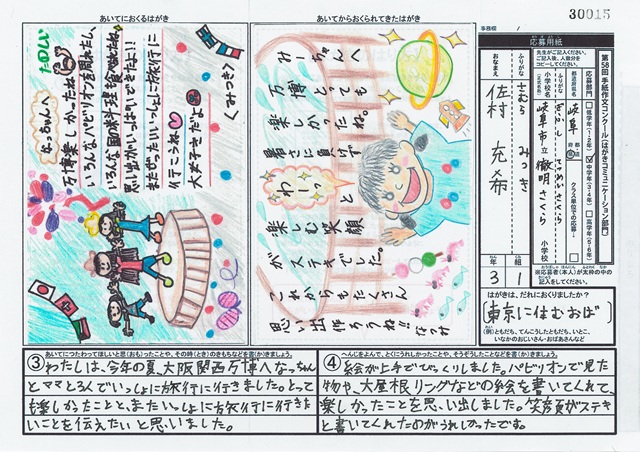 30015
事務欄
あいてにおくるはがき
なっちゃんへ
万博楽しかったね。
いろんなパビリオンを周れたし、
いろんな国の料理も食べれたね。
思い出がいっぱいできたね!!
またぜったいいっしょに旅行に
行こうね
大すきだよ
くみつき〉
たのしい
あいてからおくられてきたはがき
みっちゃんへ
万博とっても
楽しかったね。
暑さに負けず
わーっ
と
楽しむ笑顔
がステキでした。
これからもたくさん
思い出作ろうね!!なつみ
第58回 手紙作文コンクール(はがきコミュニケーション部門)
応募用紙
先生がご記入ください。
ご記入後、人数分を
コピーしてください。
都道府県名
岐阜
都道府県
ふりがな
小学校名
(正式名称)
岐阜市立徹明さくら
小学校
応募部門
低学年(1・2年)
中学年(3・4年)
高学年(5・6年)
クラス単位での応募
ふりがな
さむら みつき
おなまえ
佐村 充希
年 3
組 1
※応募者(本人)が太枠の中の
記入をしてください。
はがきは、だれにおくりましたか?
(東京に住むおば)
(例)ともだち、てんこうしたともだち、いとこ、
いなかのおじいさん・おばあさんなど
③
あいてにつたわってほしいと思(おも)ったことや、その時(とき)のきもちなどを書(か)きましょう。
わたしは、今年の夏、大阪関西万博へなっちゃん
とママと3人でいっしょに旅行に行きました。とって
も楽しかったことと、またいっしょに旅行に行きた
いことを伝えたいと思いました。
④
へんじをよんで、とくにうれしかったことや、そうぞうしたことなどを書(か)きましょう。
絵が上手でびっくりしました。パビリオンで見た
物や、大屋根リングなどの絵を書いてくれて、
楽しかったことを思い出しました。笑顔がステキ
と書いてくれたのがうれしかったです。